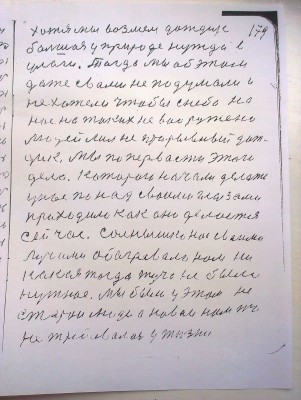 179
хотя мы возмем дождик
большая у природе нужда в
влаги. Тогда мы об этом
даже с вами не подумали и
не хотели чтобы с неба на
нас на таких не вооружено
людей лил не прорывный дож-
дик. Мы по первасти этого
дела. Которого начали делать
у нас по над своими глазами
приходило как оно делается
сейчас. Солнышко нас своими
лучими обогревала нам ни
какая тогда туча не была
нужная. Мы были у этом не
старой люди а новаи нам
не требовалась у жизни